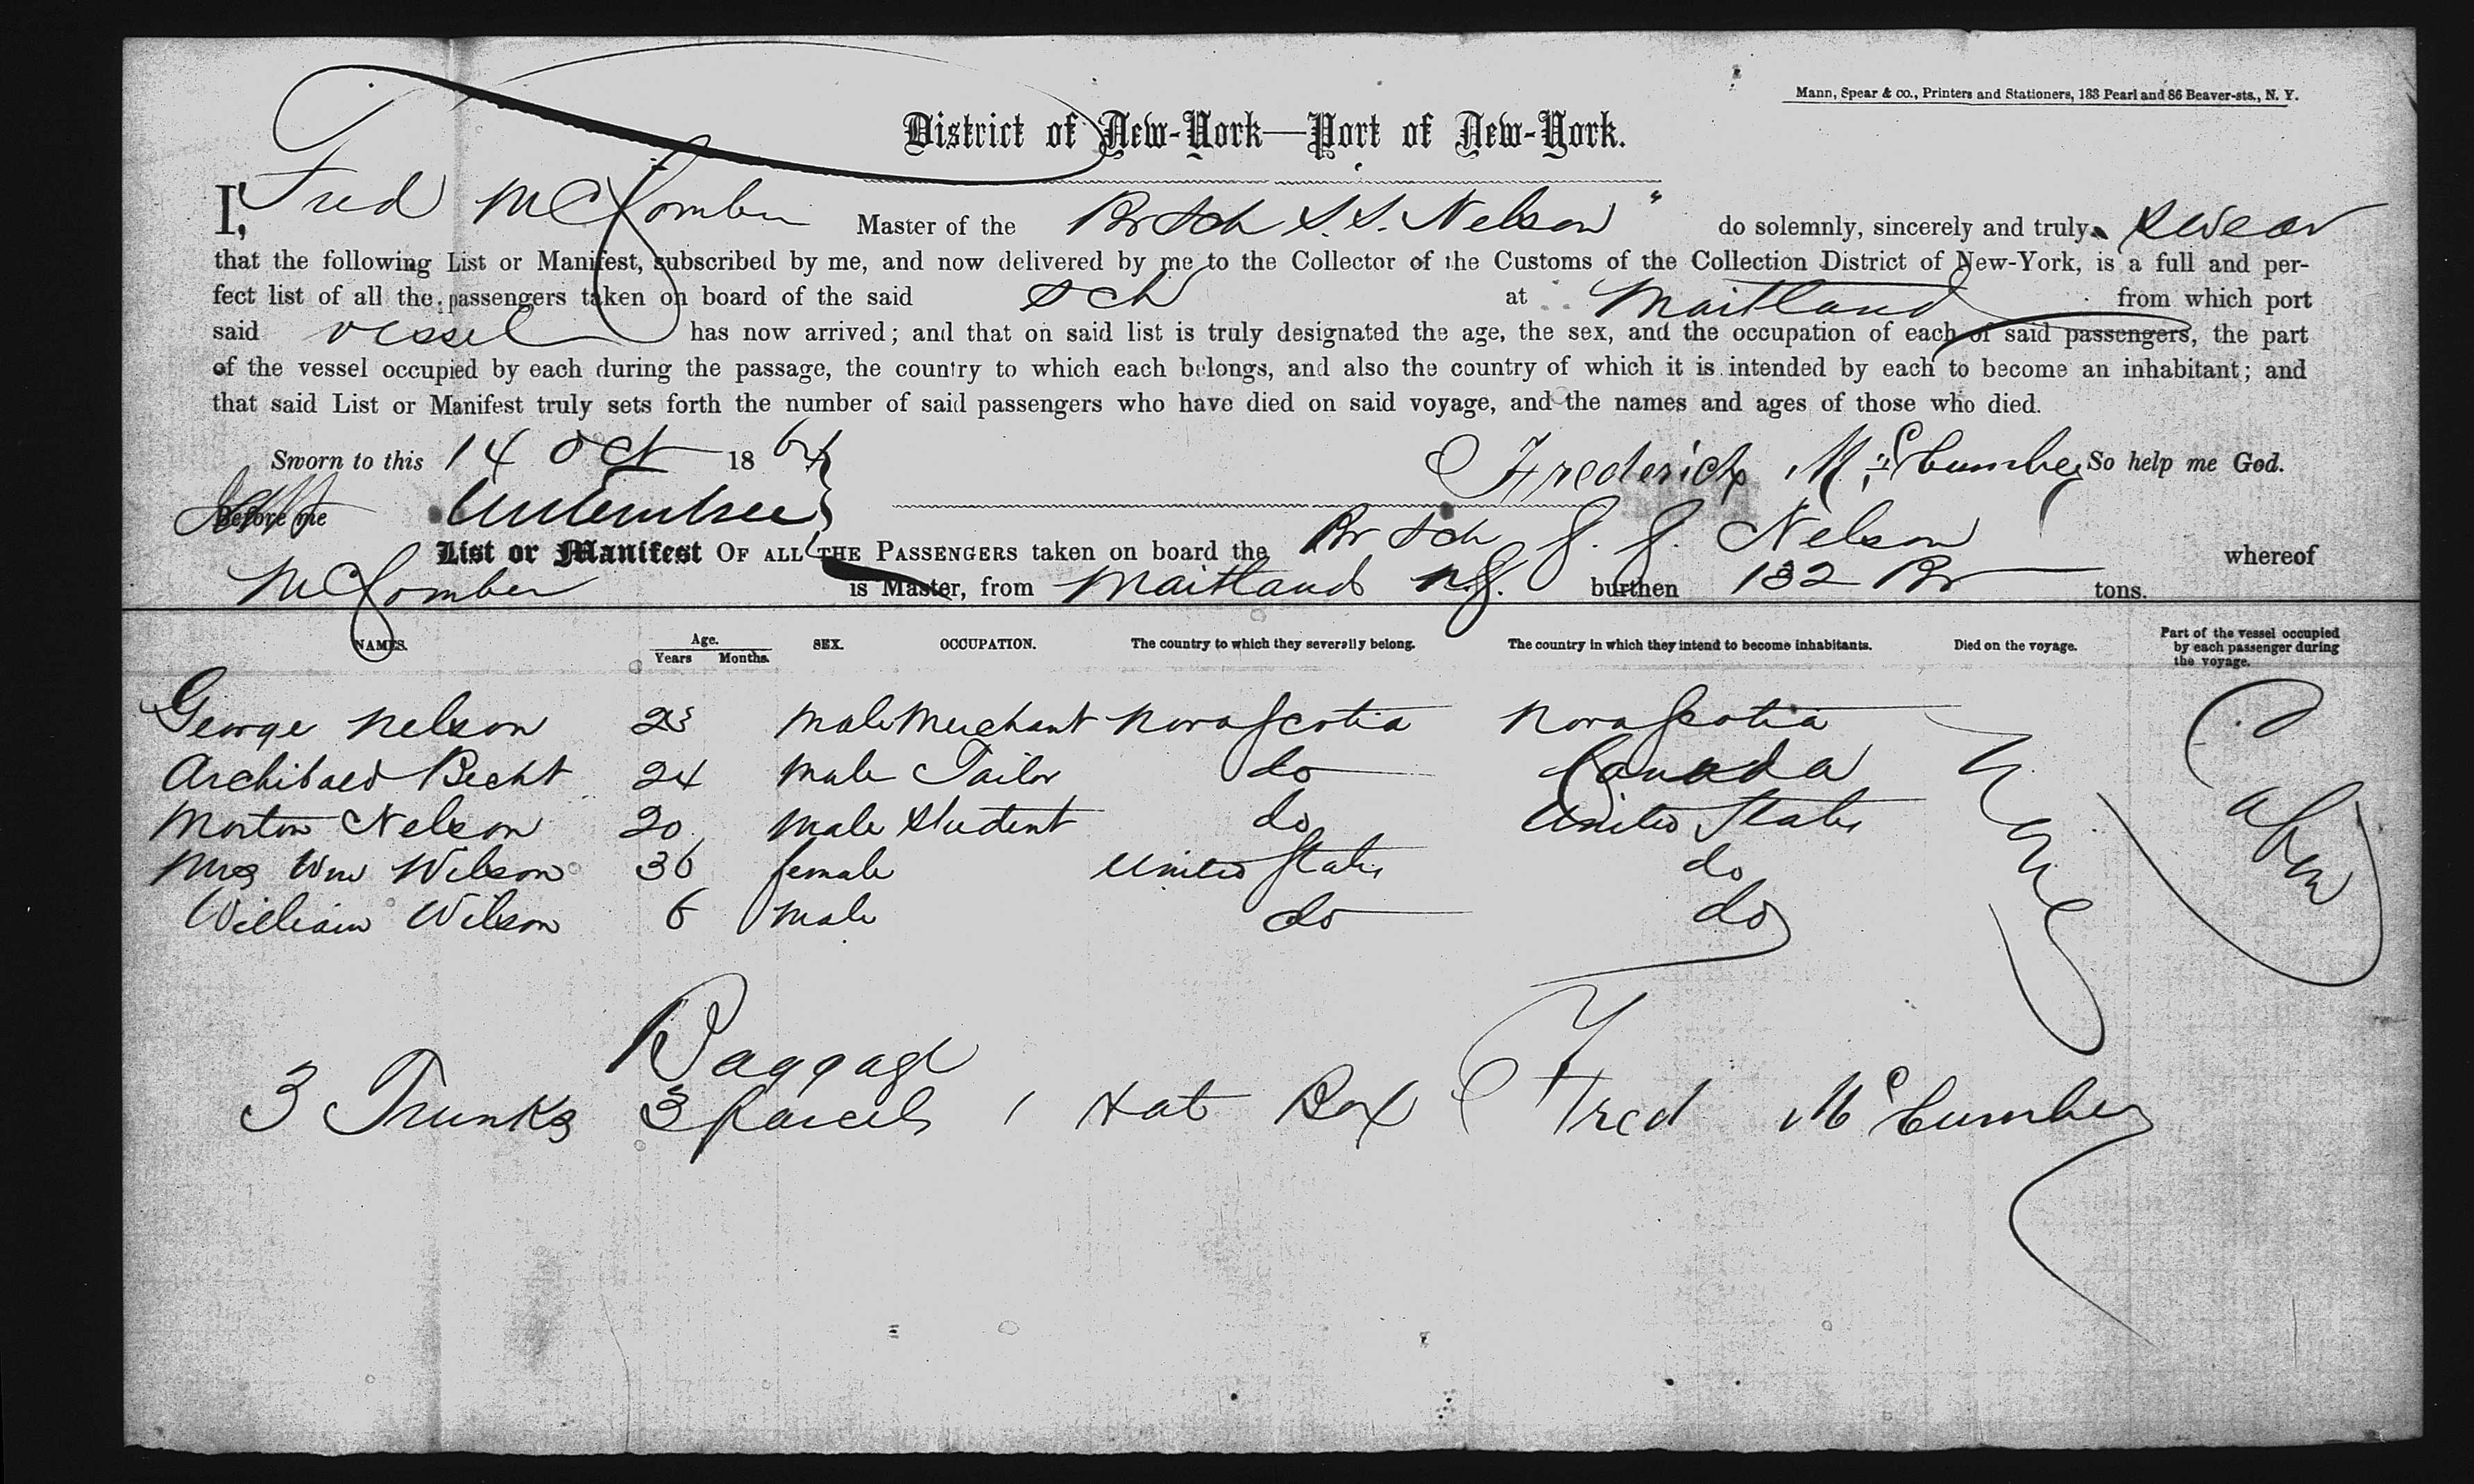 Mann, Spear & co., Printers and Stationers, 133 Pearl and 86 Beaver-sts., N. Y.
District of New-York—Port of New-York.
I, Fred McComber Master of the Br Sch S. S. Nelson" do solemnly, sincerely and truly swear
that the following List or Manifest, subscribed by me, and now delivered by me to the Collector of the Customs of the Collection District of New-York, is a full and per-
fect list of all the passengers taken on board of the said Sch at Maitland from which port
said vessel has now arrived; and that on said list is truly designated the age, the sex, and the occupation of each of said passengers, the part
of the vessel occupied by each during the passage, the country to which each belongs, and also the country of which it is intended by each to become an inhabitant; and
that said List or Manifest truly sets forth the number of said passengers who have died on said voyage, and the names and ages of those who died.
Sworn to this 14 Oct 1864 Frederick McCumber So help me God.
Before me
List or Manifest OF ALL THE PASSENGERS taken on board the Br Sch Nelson whereof
McComber is Master, from Maitland N.S. burthen 132 Br tons.
NAMES. Age. Years Months. SEX. OCCUPATION. The country to which they severally belong. The country in which they intend to become inhabitants. Died on the voyage. Part of the vessel occupied by each passenger during the voyage.
George Nelson 23 male Merchant Nova Scotia Nova Scotia
Archibald Becht 24 male Tailor do Canada
Morton Nelson 20 male Student do United States
Mrs Wm Wilson 36 female United States do
William Wilson 6 male do do
None
Cabin
Baggage
3 Trunks 3 Parcels 1 Hat Box Fred McCumber